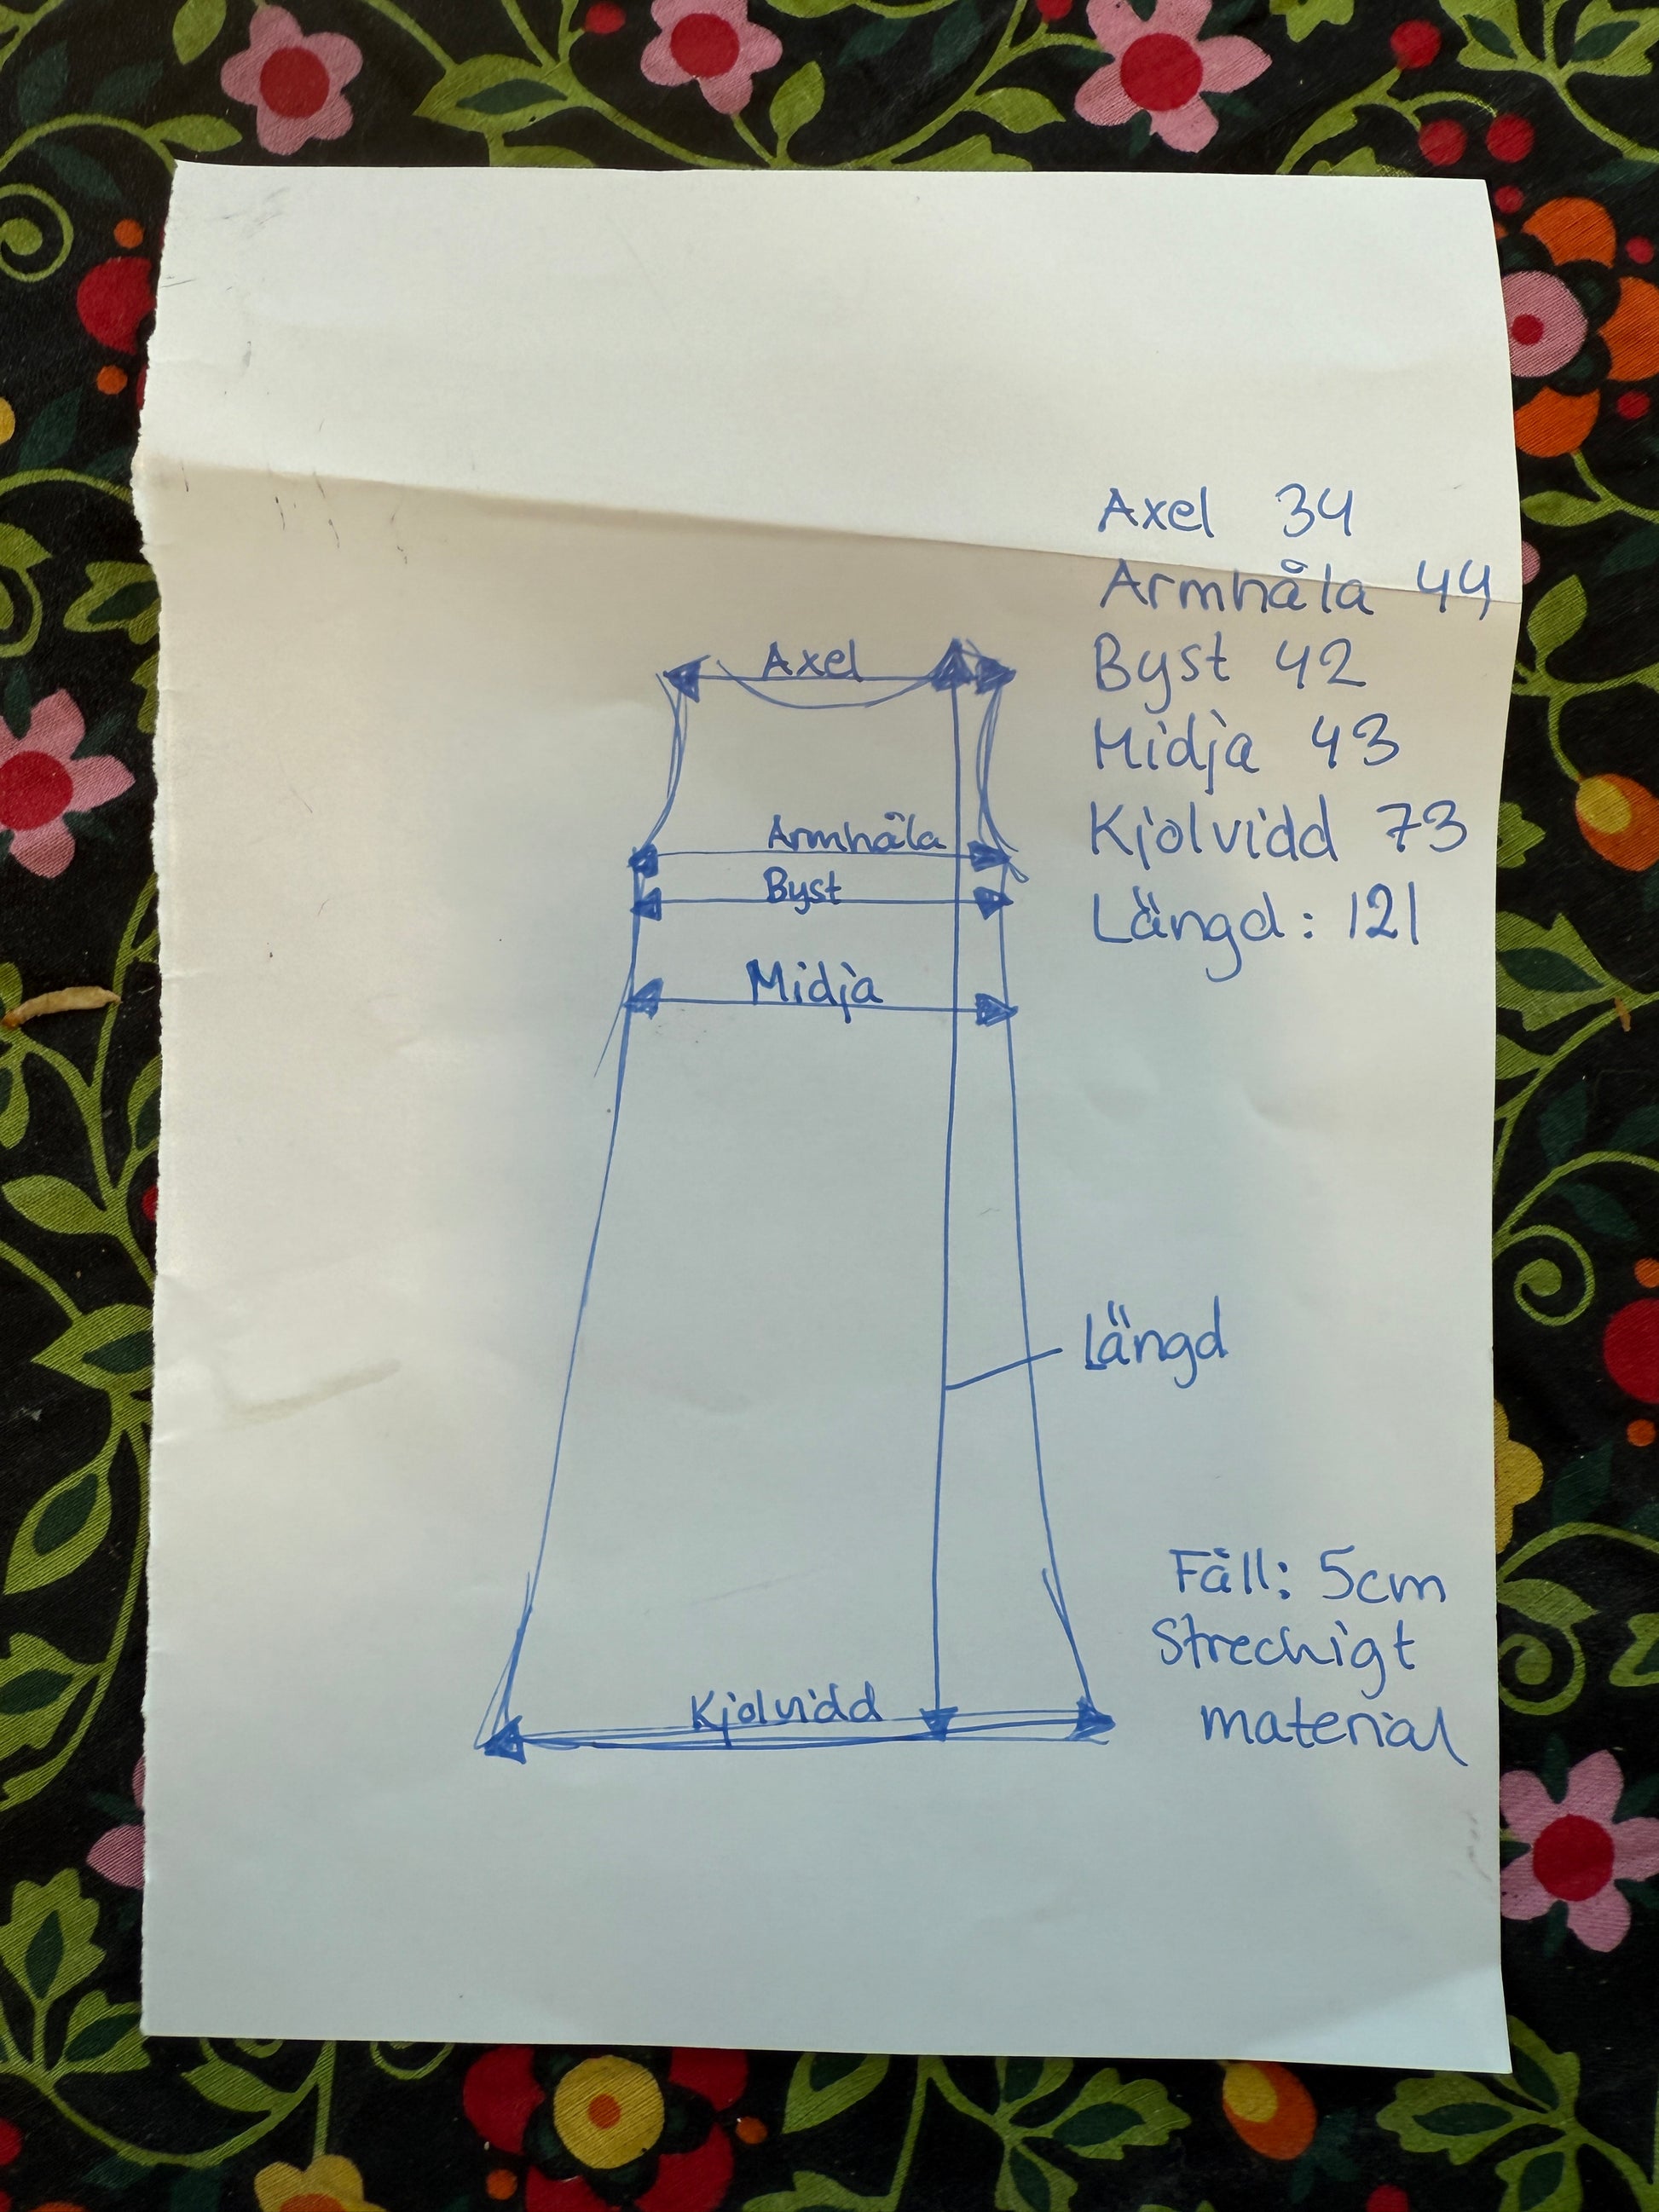 Axel 34
Armhåla 44
Byst 42
Midja 43
Kjolvidd 73
Längd: 121
Axel
Armhåla
Byst
Midja
Längd
Fåll: 5cm
Strechigt
material
Kjolvidd